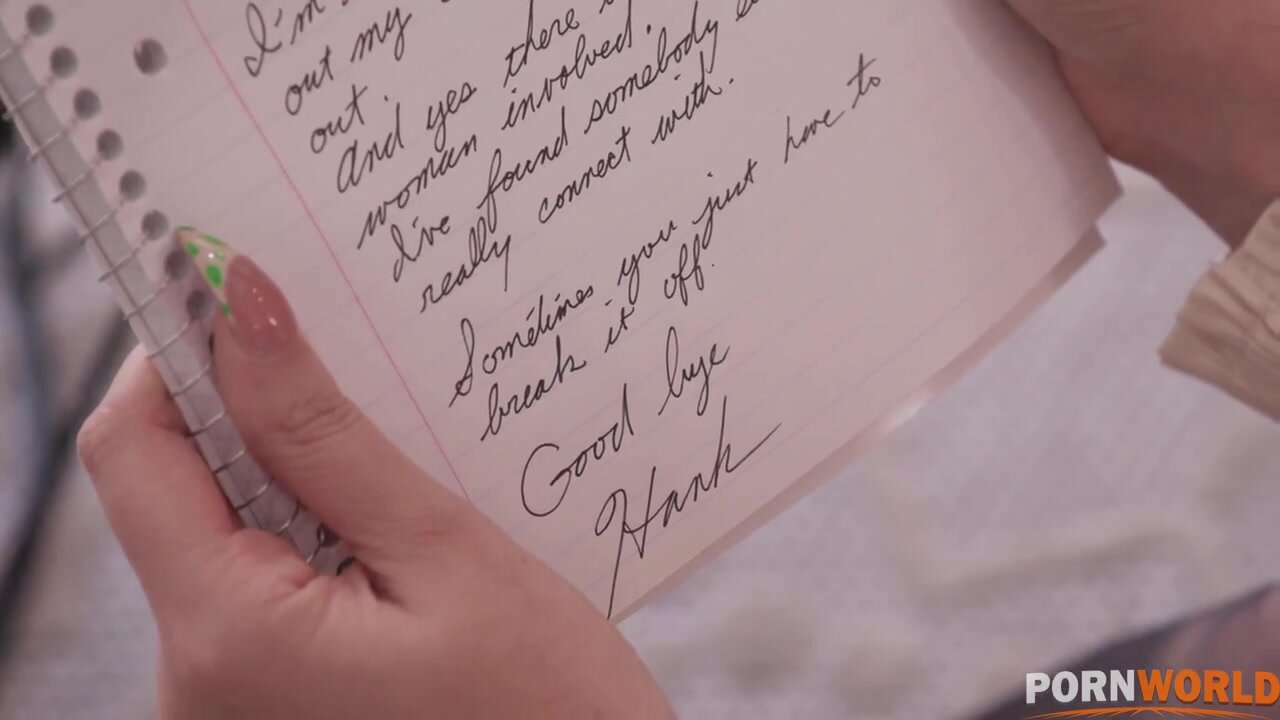 I'm
out my
out.
And yes there
woman involved.
I've found somebody
really connect with.
Sometimes you just have to
break it off.
Good bye
Hank
PORNWORLD